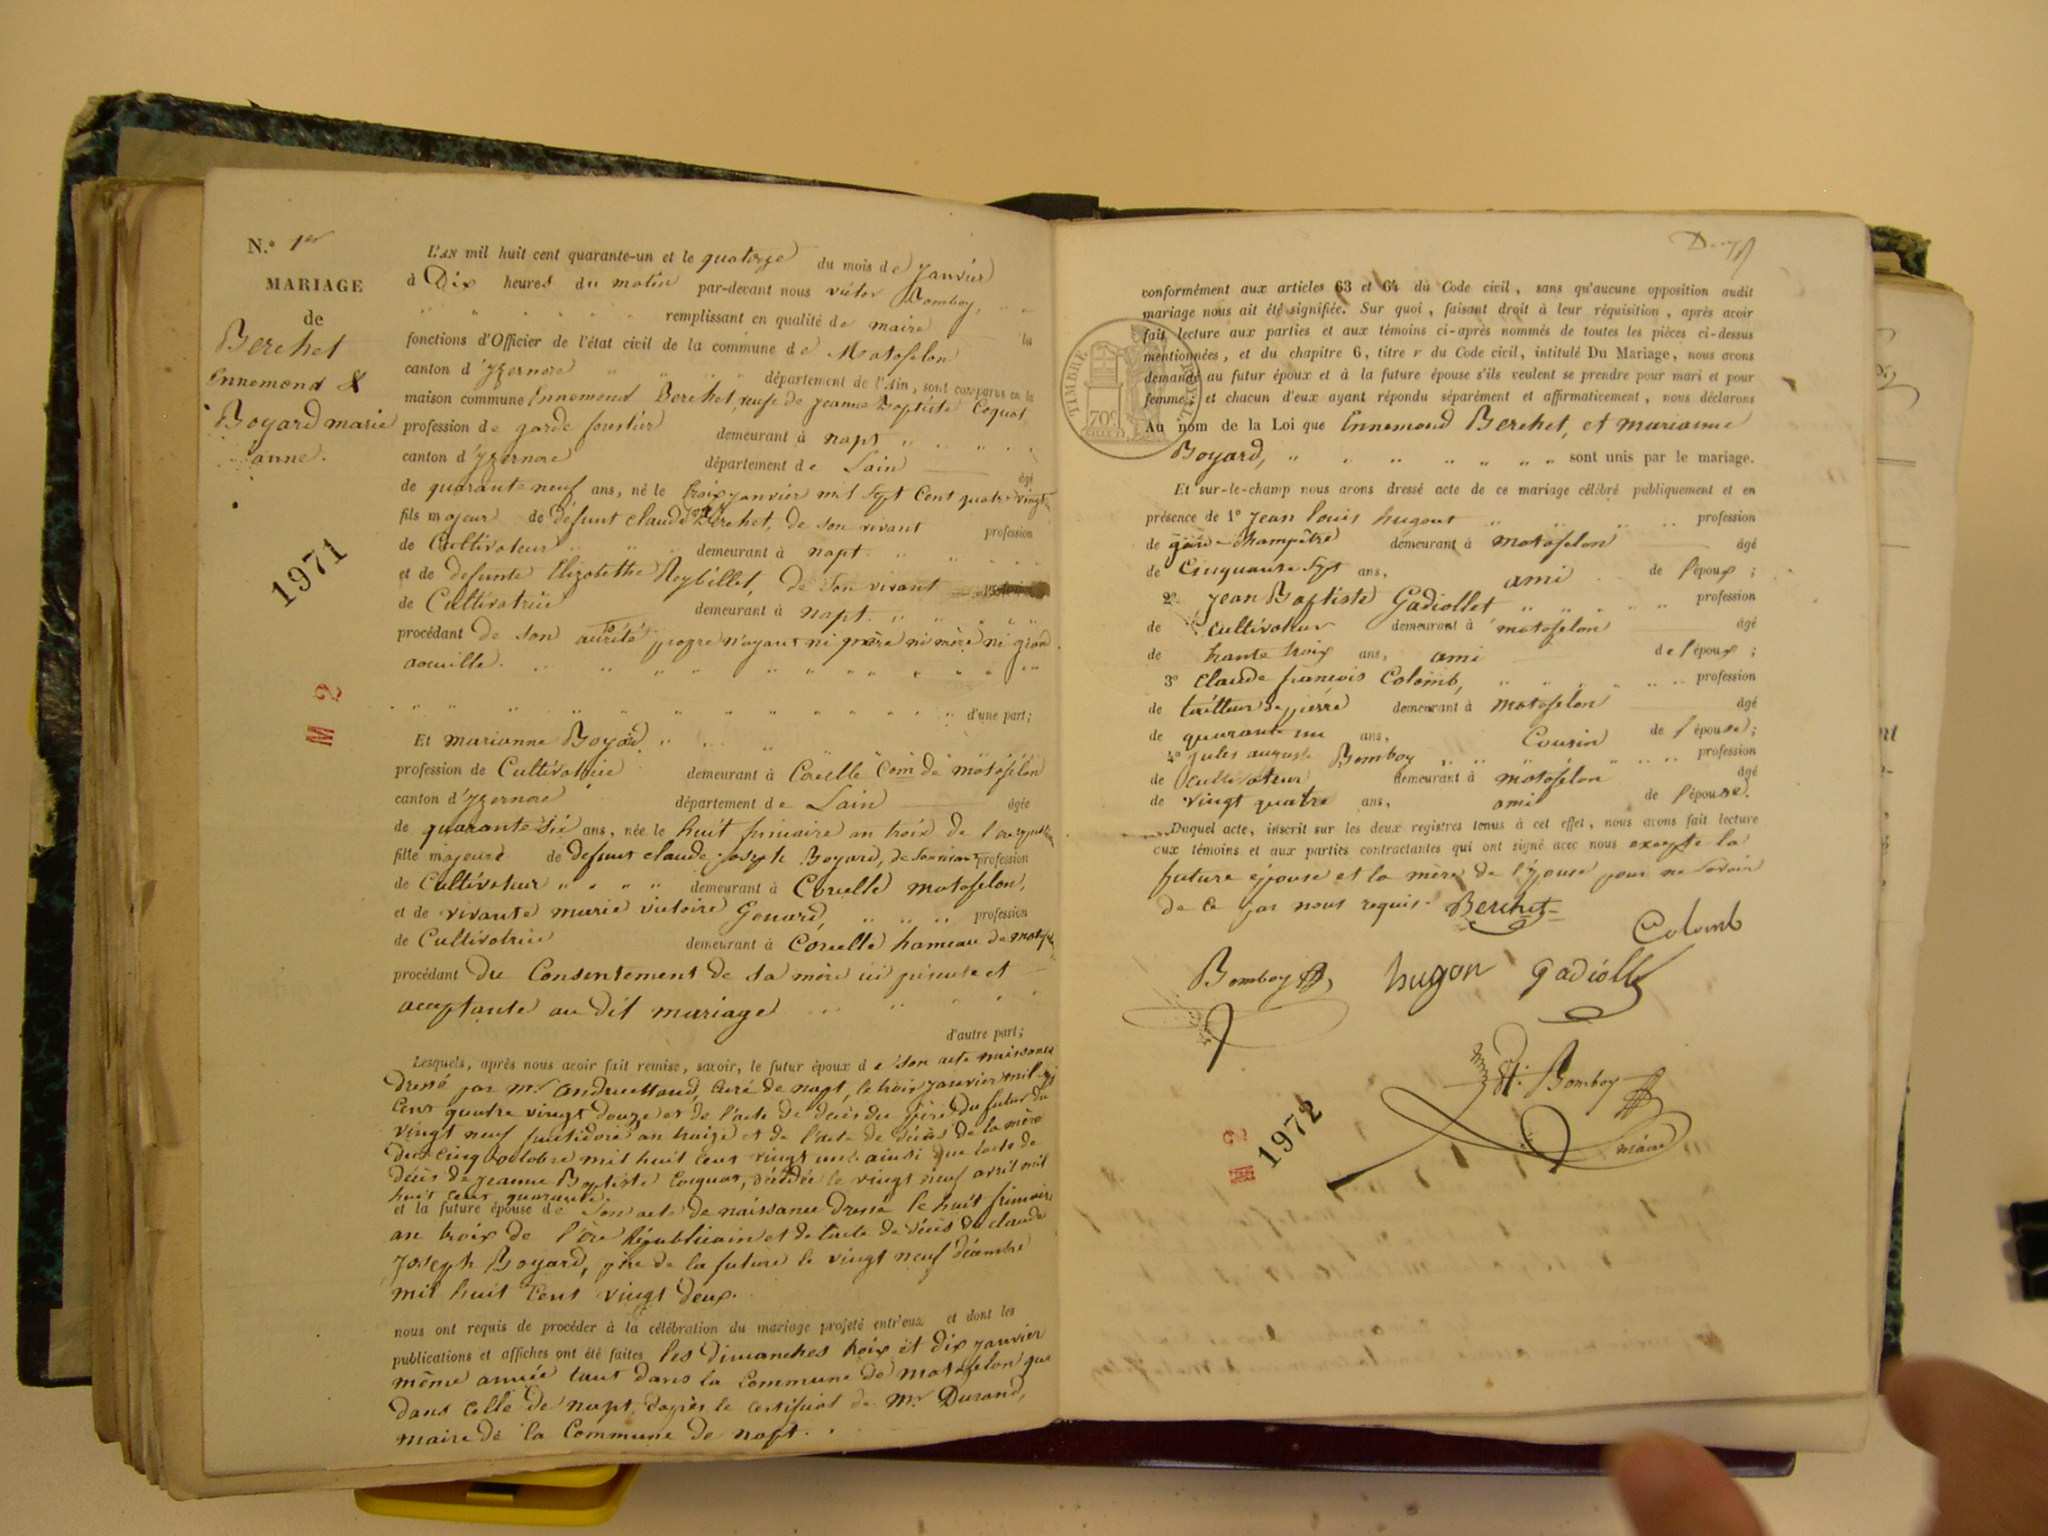 N.º 1er
MARIAGE
de
Berchet
Ennemond &
Boyard marie
anne.
1971
M 2
L'AN mil huit cent quarante-un et le quatorze du mois de janvier
à Dix heures du matin par-devant nous victor Bomboy,
remplissant en qualité de maire la
fonctions d'Officier de l'état civil de la commune de Matafelon
canton d'yzernore département de l'Ain, sont comparus en la
maison commune Ennemond Berchet, veuf de jeanne Baptiste Coquat,
profession de garde forestier demeurant à napt
canton d'yzernore département de Lain âgé
de quarante neuf ans, né le trois janvier mil sept cent quatre vingt
fils majeur de défunt claude Berchet, de son vivant profession
de Cultivateur demeurant à napt.
et de defunte Elizabethe Reybillet, de son vivant
de Cultivatrice demeurant à napt.
procédant de son autorité propre n'ayant ni père ni mère ni
aeuille.
d'une part;
Et marianne Boyard
profession de Cultivatrice demeurant à Corcelle Com de matafelon
canton d'yzernore département de Lain âgée
de quarante six ans, née le huit frimaire an trois de l'ere
fille majeure de defunt claude joseph Boyard, de son vivant profession
de Cultivateur demeurant à Corcelle matafelon,
et de vivante marie victoire Gouard profession
de Cultivatrice demeurant à Corcelle hameau de
procédant du Consentement de sa mère ici présente et
aceptante au dit mariage
d'autre part;
Lesquels, après nous avoir fait remise, savoir, le futur époux de son acte naissance
dressé par mr curé de napt, le trois janvier mil
cent quatre vingt douze et de l'acte de décès du père du futur du
vingt neuf fructidore an treize et de l'acte de décès de la mère
du cinq octobre mil huit cent vingt un ainsi que lacte de
décès de jeanne Baptiste Coquat, décédée le vingt neuf avril mil
huit cent quarante.
et la future épouse de son acte de naissance dressé le huit frimaire
an trois de l'ère Républicain et de lacte de décès de claude
joseph Boyard, père de la future le vingt neuf décembre
mil huit cent vingt deux.
nous ont requis de procéder à la célébration du mariage projeté entr'eux et dont les
publications et affiches ont été faites les dimanches trois et dix janvier
même année tant dans la Commune de matafelon que
dans celle de napt, daprès le certificat de Mr Durand,
maire de la Commune de napt.
conformément aux articles 63 et 64 du Code civil, sans qu'aucune opposition audit
mariage nous ait été signifiée. Sur quoi, faisant droit à leur réquisition, après avoir
fait lecture aux parties et aux témoins ci-après nommés de toutes les pièces ci-dessus
mentionnées, et du chapitre 6, titre v du Code civil, intitulé Du Mariage, nous avons
demandé au futur époux et à la future épouse s'ils veulent se prendre pour mari et pour
femme; et chacun d'eux ayant répondu séparément et affirmativement, nous déclarons
TIMBRE ROYAL
70c
Au nom de la Loi que Ennemond Berchet, et marianne
Boyard, sont unis par le mariage.
Et sur-le-champ nous avons dressé acte de ce mariage célébré publiquement et en
présence de 1º jean louis hugont profession
de garde-champêtre demeurant à matafelon âgé
de Cinquante sept ans, ami de l'époux;
2º jean Baptiste Gadiollet profession
de Cultivateur demeurant à matafelon âgé
de trante trois ans, ami de l'époux;
3º Claude francois Colomb, profession
de tailleur de pierre demeurant à matafelon âgé
de quarante un ans, Cousin de l'épouse;
4º jules auguste Bomboy profession
de Cultivateur demeurant à matafelon âgé
de vingt quatre ans, ami de l'épouse.
Duquel acte, inscrit sur les deux registres tenus à cet effet, nous avons fait lecture
aux témoins et aux parties contractantes qui ont signé avec nous excepte la
future épouse et la mère de l'épouse pour ne savoir
de ce par nous requis. Berchet
Colomb
Bomboy hugon Gadiolle
Bomboy
maire
1972
M 2